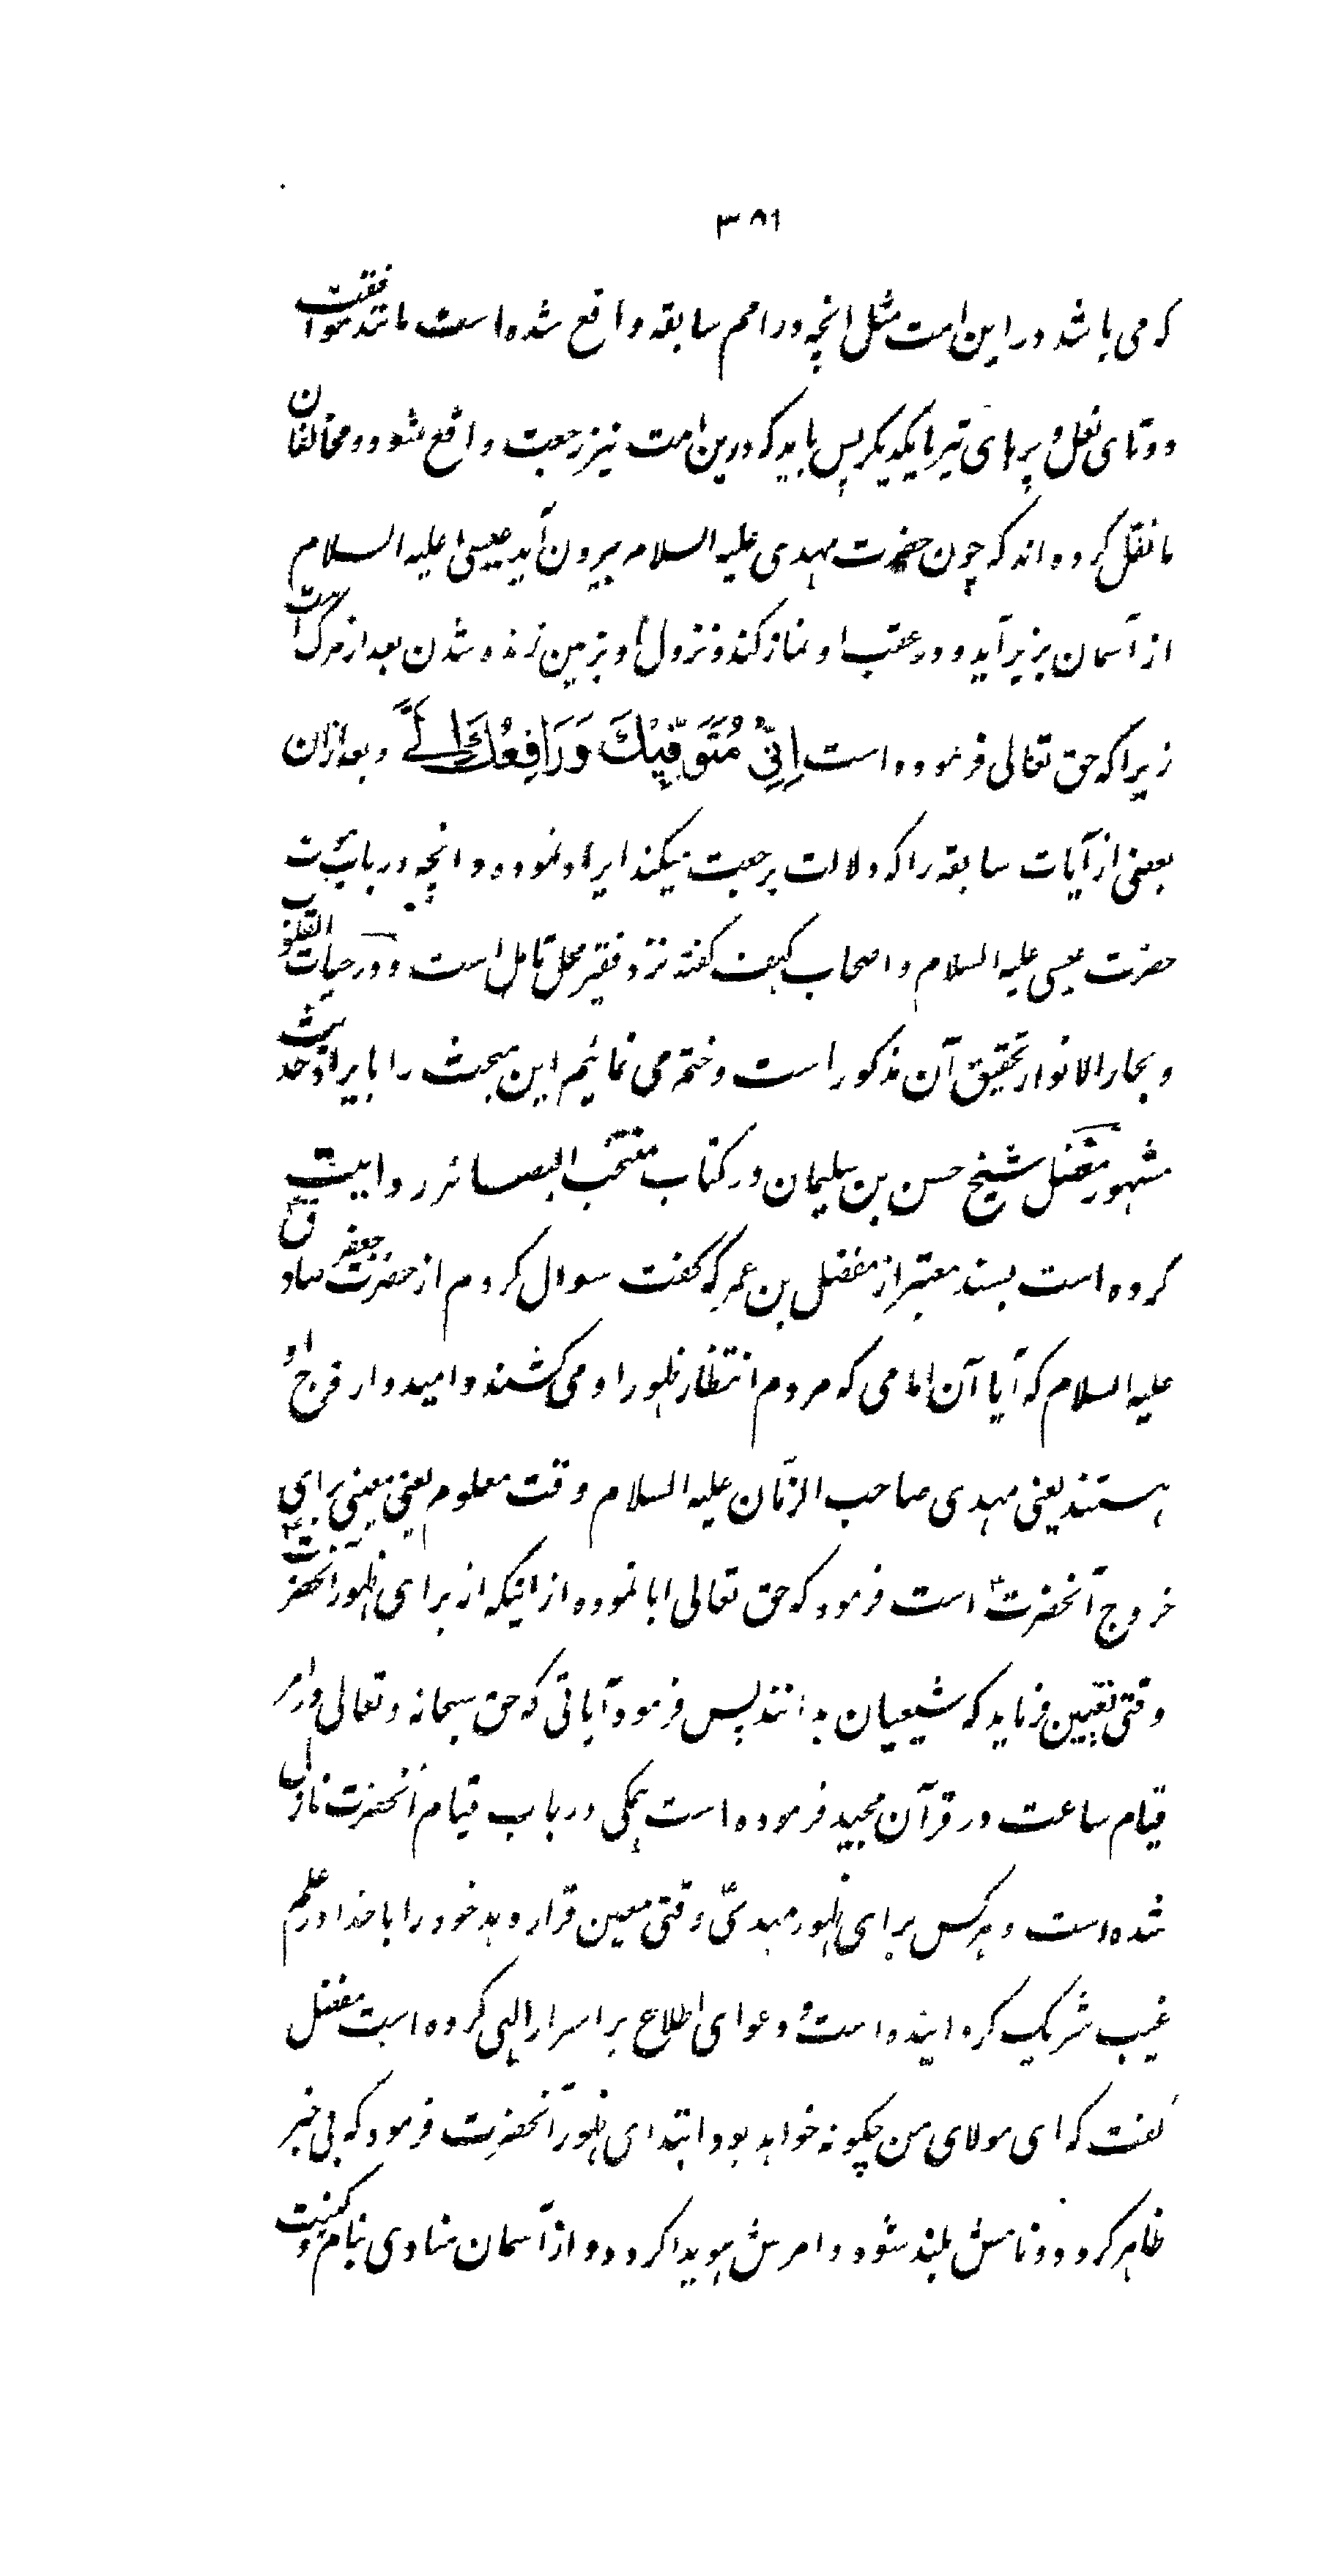 ۳۸۱
که می باشد در این امت مثل انچه در امم سابقه واقع شده است مانند موافقت
دو تای نعل و پرهای تیر با یکدیگر پس باید که درین امت نیز رجعت واقع شود و مخالفان
ما نقل کرده اند که چون حضرت مهدی علیه السلام بیرون آید عیسیٰ علیه السلام
از آسمان بزیر آید و در عقب او نماز کند و نزول او بزمین زنده شدن بعد از مرگ است
زیرا که حق تعالی فرموده است اِنِّیْ مُتَوَفِّیْكَ وَرَافِعُكَ اِلَیَّ و بعد ازان
بعضی از آیات سابقه را که دلالت برجعت میکند ایراد نموده و انچه در باب
حضرت عیسی علیه السلام و اصحاب کهف گفته نزد فقیر محل تامل است و در حیات القلوب
و بحار الانوار تحقیق آن مذکور است و ختم می نمائیم این مبحث را بایراد حدیث
مشهور مفضل شیخ حسن بن سلیمان در کتاب منتخب البصائر روایت
کرده است بسند معتبر از مفضل بن عمر که گفت سوال کردم از حضرت جعفر صادق
علیه السلام که آیا آن امامی که مردم انتظار ظهور او می کشند و امیدوار فرج او
هستند یعنی مهدی صاحب الزمان علیه السلام وقت معلوم یعنی معینی برای
خروج آنحضرتؑ است فرمود که حق تعالی ابا نموده از اینکه از برای ظهور آنحضرتؑ
وقتی تعیین فرماید که شیعیان بدانند پس فرمود آیاتی که حق سبحانه و تعالی در امر
قیام ساعت در قرآن مجید فرموده است همگی در باب قیام آنحضرت نازل
شده است و هر کس برای ظهور مهدیؑ وقتی معین قرار دهد خود را با خدا در علم
غیب شریک گردانیده است و دعوای اطلاع بر اسرار الهی کرده است مفضل
گفت که ای مولای من چگونه خواهد بود ابتدای ظهور آنحضرت فرمود که بی خبر
ظاهر گردد و نامش بلند شود و امرش هویدا گردد و از آسمان منادی بنام و کنیت